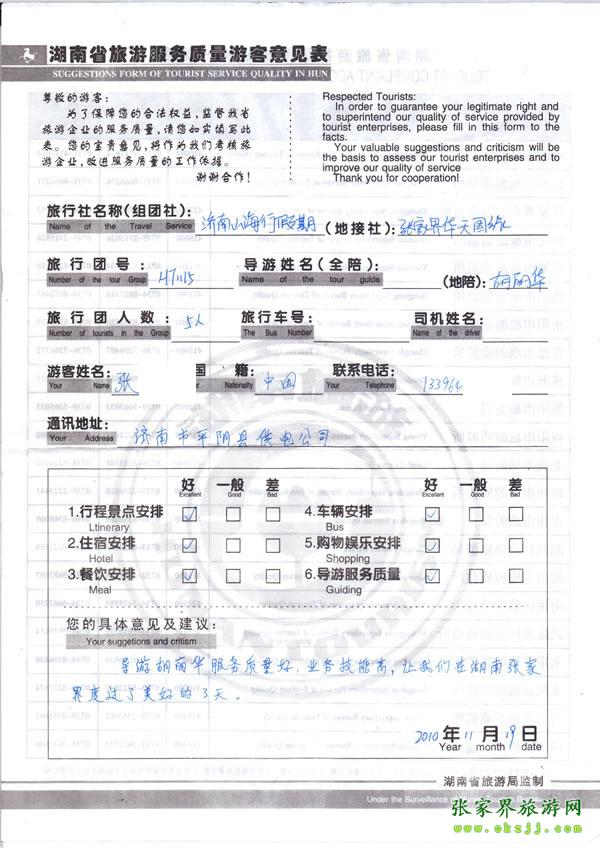 湖南省旅游服务质量游客意见表
SUGGESTIONS FORM OF TOURIST SERVICE QUALITY IN HUN
尊敬的游客：
为了保障您的合法权益，监督我省
旅游企业的服务质量，请您如实填写此
表。您的宝贵意见，将作为我们考核旅
游企业，改进服务质量的工作依据。
谢谢合作！
Respected Tourists:
In order to guarantee your legitimate right and
to superintend our quality of service provided by
tourist enterprises, please fill in this form to the
facts.
Your valuable suggestions and criticism will be
the basis to assess our tourist enterprises and to
improve our quality of service
Thank you for cooperation!
旅行社名称(组团社)： 济南山海行假期 (地接社)： 张家界华天国旅
Name of the Travel Service
旅行团号： 导游姓名(全陪)： (地陪)： 胡丽华
Number of the tour Group Name of the tour guide
旅行团人数： 5人 旅行车号： 司机姓名：
Number of tourists in the Group The Bus Number Name of the driver
游客姓名： 张 国籍： 中国 联系电话： 133964
Your Name Nationality Your Telephone
通讯地址： 济南市平阴县供电公司
Your Address
好 一般 差 好 一般 差
Excellent Good Bad Excellent Good Bad
1.行程景点安排 ✓ 4.车辆安排 ✓
Ltinerary Bus
2.住宿安排 ✓ 5.购物娱乐安排 ✓
Hotel Shopping
3.餐饮安排 ✓ 6.导游服务质量 ✓
Meal Guiding
您的具体意见及建议：
Your suggetions and critism
导游胡丽华服务质量好，业务技能高，让我们在湖南张家
界度过了美好的3天。
2010年11月19日
Year month date
湖南省旅游局监制
Under the Surveillance of
张家界旅游网
www.okzjj.com